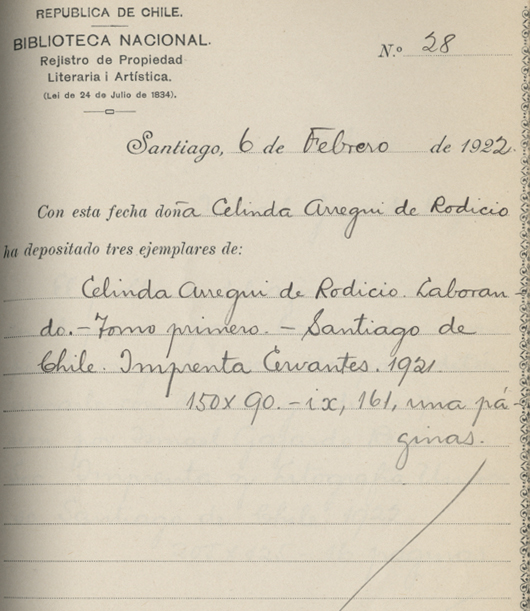 REPUBLICA DE CHILE.
BIBLIOTECA NACIONAL.
Rejistro de Propiedad
Literaria i Artística.
(Lei de 24 de Julio de 1834).
N.º 28
Santiago, 6 de Febrero de 1922.
Con esta fecha doña Celinda Arregui de Rodicio
ha depositado tres ejemplares de:
Celinda Arregui de Rodicio. Laboran-
do.- Tomo primero. - Santiago de
Chile. Imprenta Cervantes. 1921.
150x90. - ix, 161, una pá-
ginas.